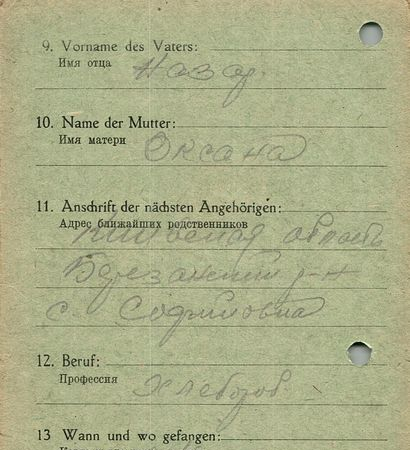 9. Vorname des Vaters:
Имя отца
Назар.
10. Name der Mutter:
Имя матери
Оксана
11. Anschrift der nächsten Angehörigen:
Адрес ближайших родственников
область
р-н
с.
12. Beruf:
Профессия
Хлебороб.
13 Wann und wo gefangen: